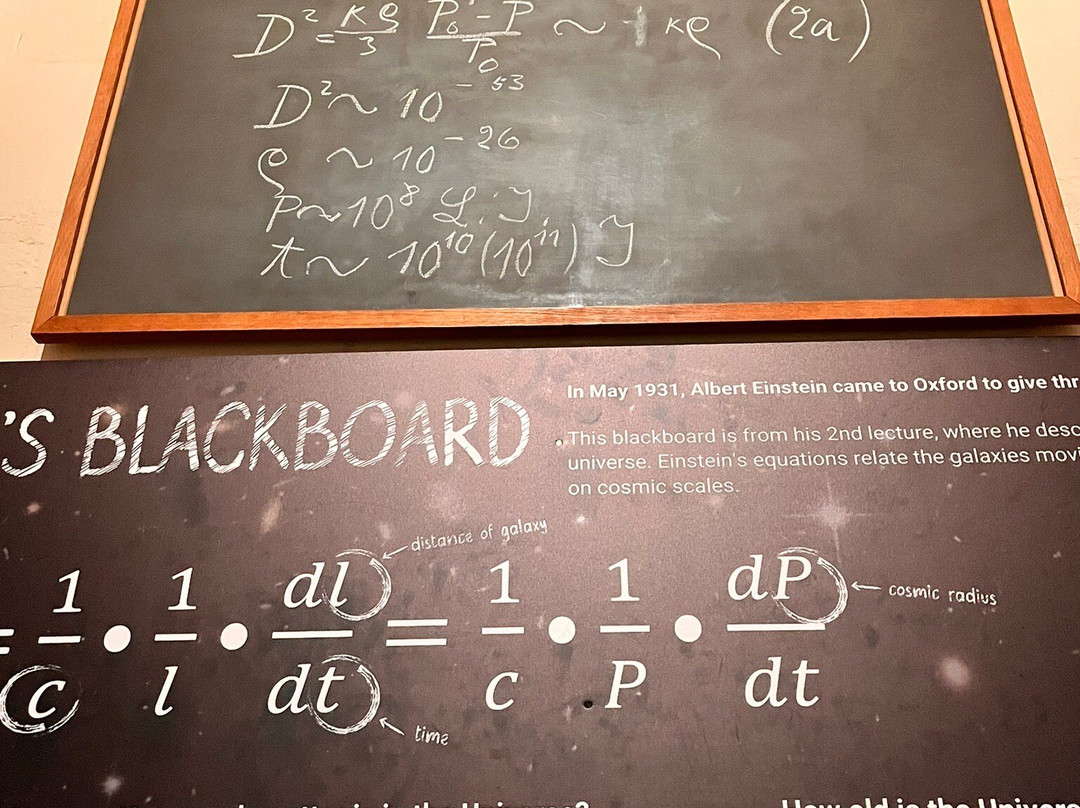 D² = κρ/3 P₀-P/P₀ ~ κρ (2a)
D² ~ 10⁻⁵³
ρ ~ 10⁻²⁶
P ~ 10⁸ L.J.
t ~ 10¹⁰(10¹¹) J
'S BLACKBOARD
In May 1931, Albert Einstein came to Oxford to give thr
This blackboard is from his 2nd lecture, where he desc
universe. Einstein's equations relate the galaxies movi
on cosmic scales.
distance of galaxy
= 1/c • 1/l • dl/dt = 1/c • 1/P • dP/dt
cosmic radius
time